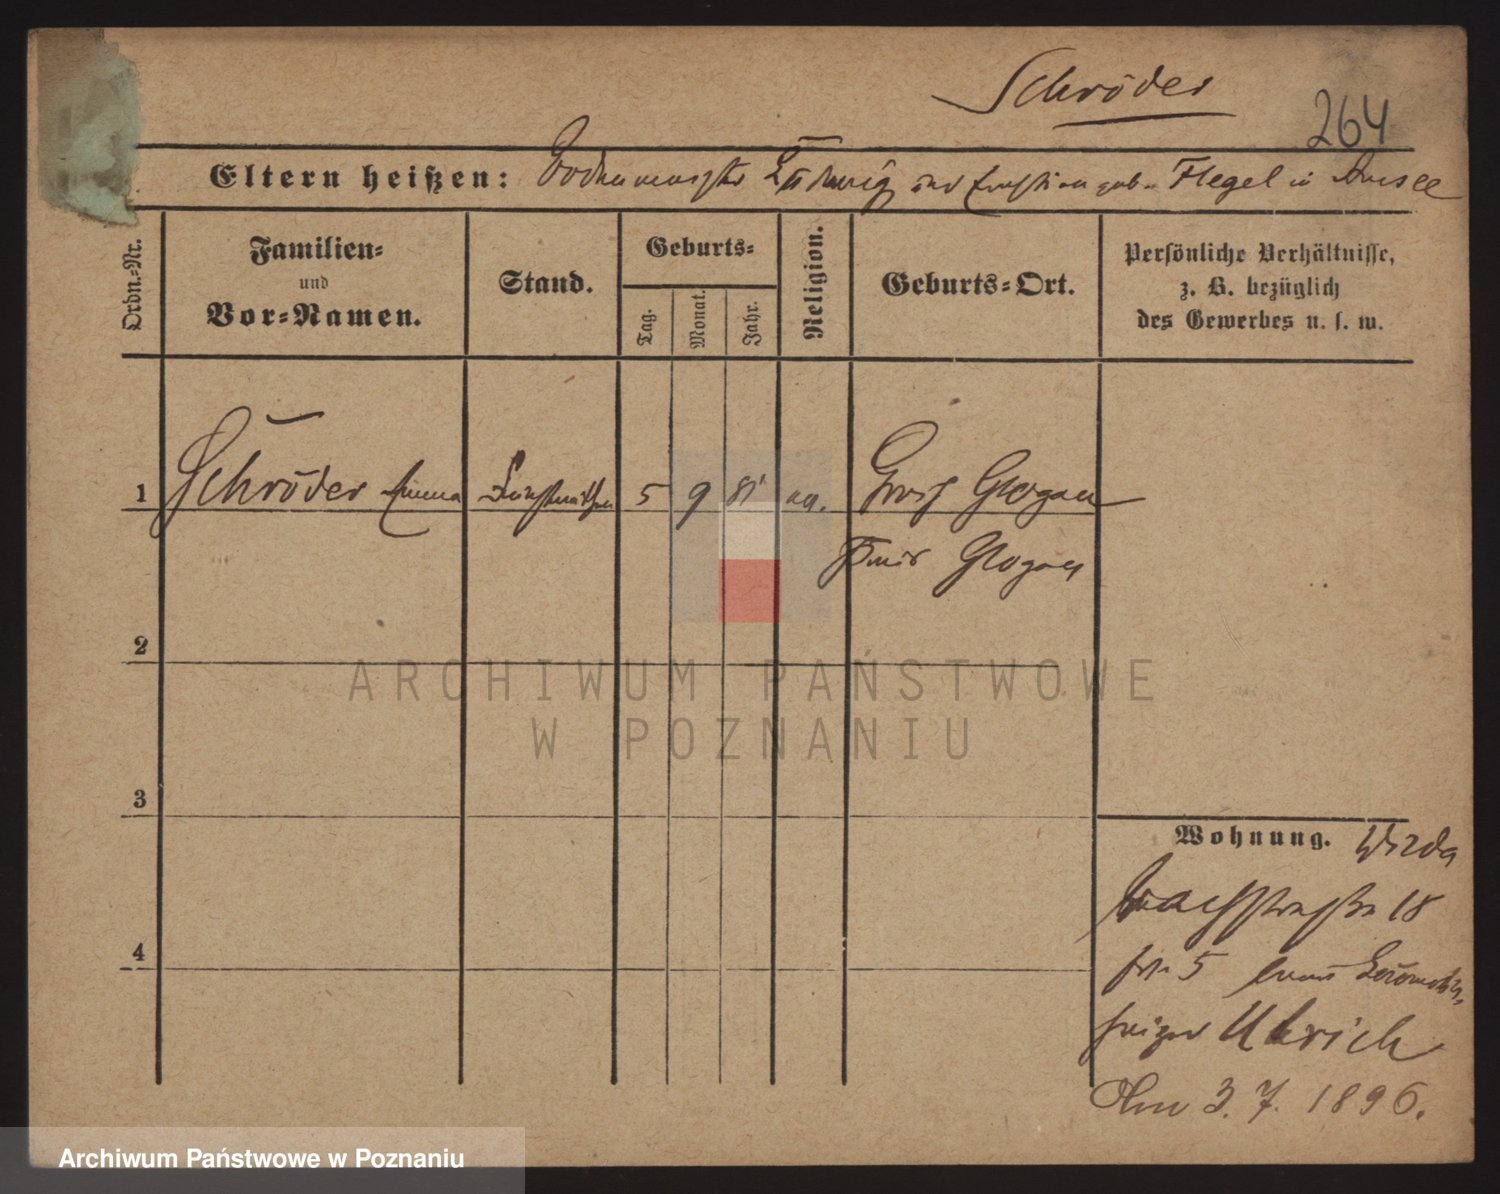 Schröder
264
Eltern heißen: Ludwig und geb. Flegel in
Ordn.-Nr.
Familien-
und
Vor-Namen.
Stand.
Geburts-
Tag.
Monat.
Jahr.
Religion.
Geburts-Ort.
Persönliche Verhältnisse,
z. B. bezüglich
des Gewerbes u. s. w.
1 Schröder Emma 5 9 81 Groß Glogau
Kreis Glogau
2
3
4
Wohnung. Wilda
18
5
Ulrich
3. 7. 1896.
ARCHIWUM PAŃSTWOWE
W POZNANIU
Archiwum Państwowe w Poznaniu